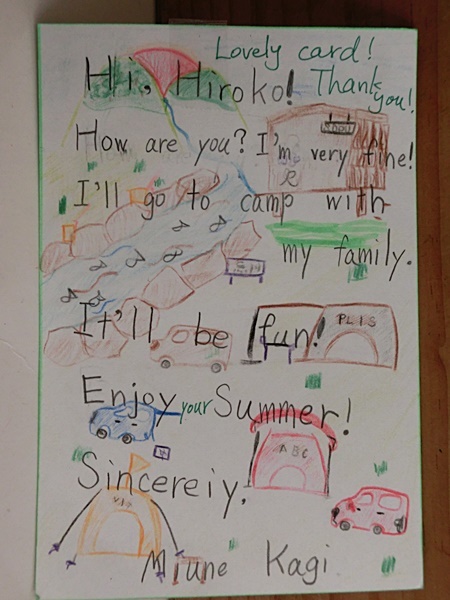 Lovely card!
Thank you!
Hi, Hiroko!
How are you? I'm very fine!
I'll go to camp with
my family.
It'll be fun!
PLIS
Enjoy your Summer!
ABC
Sincereiy,
Miune Kagi